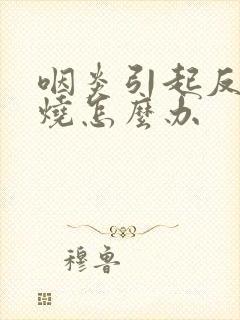 咽炎引起反
燒怎麼办
穆鲁